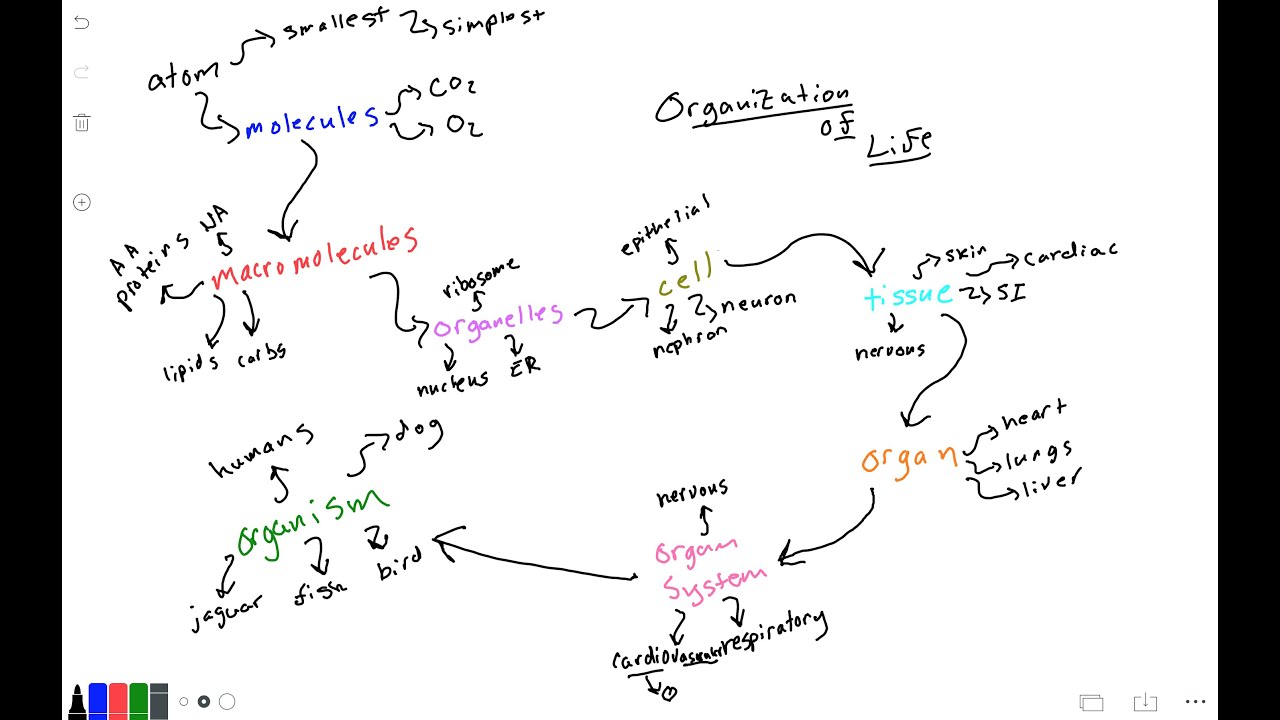 smallest
simplest
atom
Organization
of
Life
molecules
CO2
O2
AA
proteins
NA
macromolecules
lipids
carbs
ribosome
organelles
nucleus
ER
epithelial
cell
neuron
nephron
skin
cardiac
tissue
SI
nervous
organ
heart
lungs
liver
nervous
organ
system
cardiovascular
respiratory
humans
dog
organism
jaguar
fish
bird